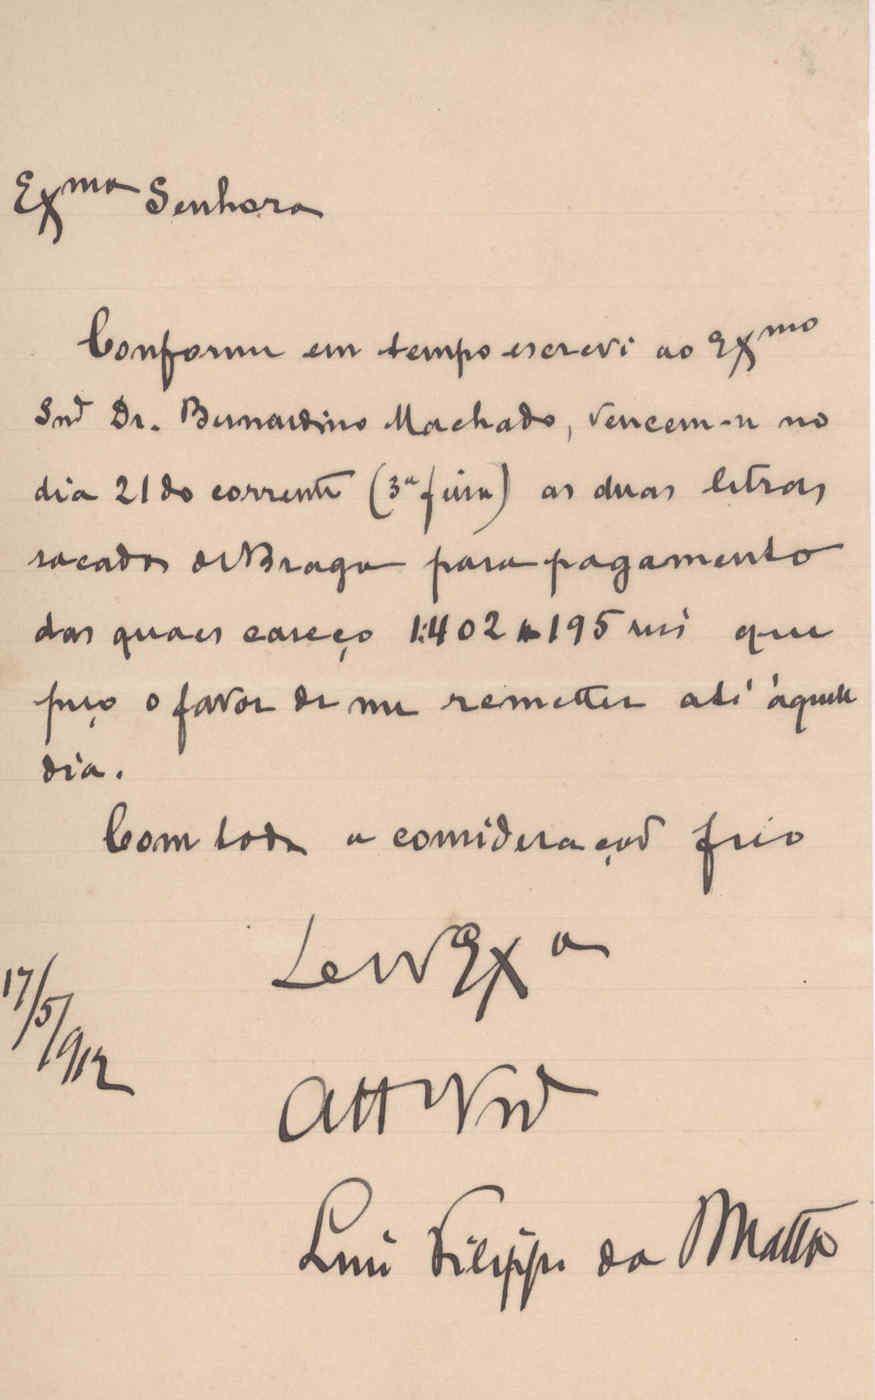 Exma Senhora
Conforme em tempo escrevi ao Exmo
Snr Dr. Bernardino Machado, vencem-se no
dia 21 do corrente (3ª feira) as duas letras
sacadas de Braga para pagamento
das quaes careço 1:402$195 reis que
peço o favor de me remetter até áquelle
dia.
Com toda a consideração sou
De V Exª
Att Vnr
Luiz Filippe da Matta
17/5/912